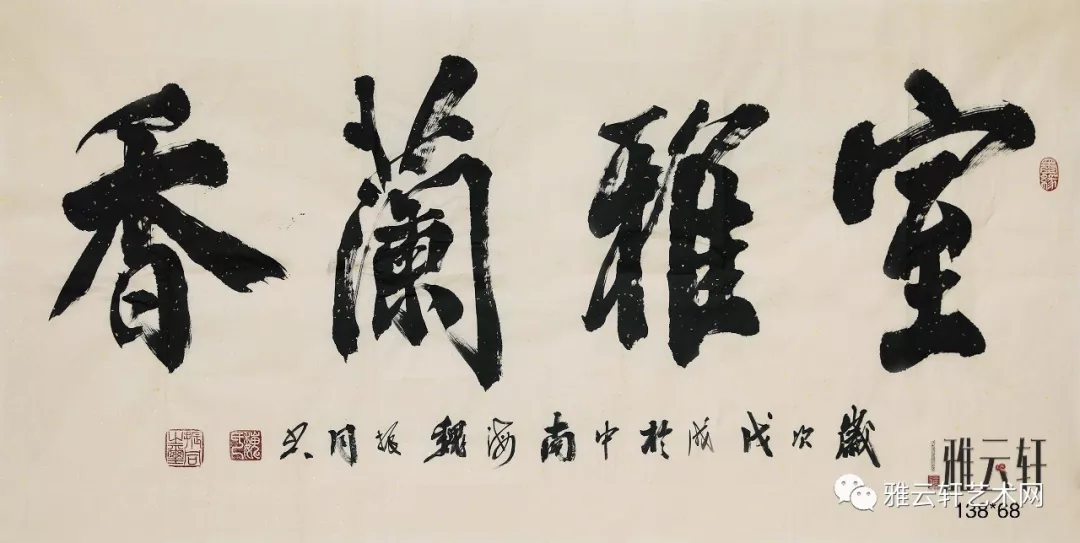 室雅蘭香
歲次戊戌於中南海魏振同书
雅云轩
雅云轩艺术网
138*68